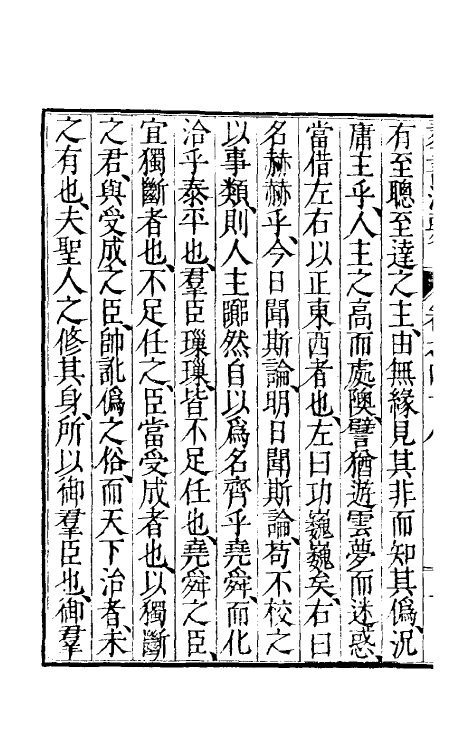 有至聰至達之主、由無緣見其非而知其僞、況
庸主乎、人主之高而處隩、譬猶遊雲夢而迷惑、
當借左右以正東西者也、左曰功巍巍矣、右曰
名赫赫乎、今日聞斯論、明日聞斯論、苟不校之
以事類、則人主嘅然自以爲名齊乎堯舜、而化
洽乎泰平也、羣臣璅璅、皆不足任也、堯舜之臣、
宜獨斷者也、不足任之、臣當受成者也、以獨斷
之君、與受成之臣、帥訛僞之俗、而天下治者、未
之有也、夫聖人之修其身、所以御羣臣也、御羣